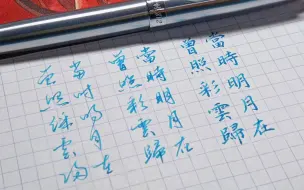 當時明月在
曾照彩雲歸
當時明月在
曾照彩雲歸
當時明月在
曾照彩雲歸